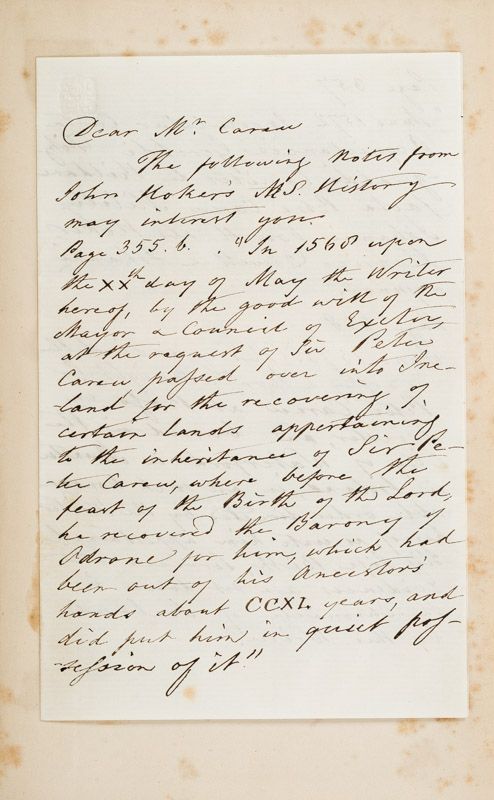 Dear Mr. Carew
The following Notes from
John Hoker's MS. History
may interest you.
Page 355. b. . "In 1568 upon
the XXth day of May the Writer
hereof, by the good will of the
Mayor & Council of Exeter,
at the request of Sir Peter
Carew passed over into Ire-
-land for the recovering of
certain lands appertaining
to the inheritance of Sir Pe-
-ter Carew, where before the
feast of the Birth of the Lord,
he recovered the Barony of
Odrone for him, which had
been out of his Ancestors
hands about CCXL years, and
did put him in quiet pos-
-session of it."